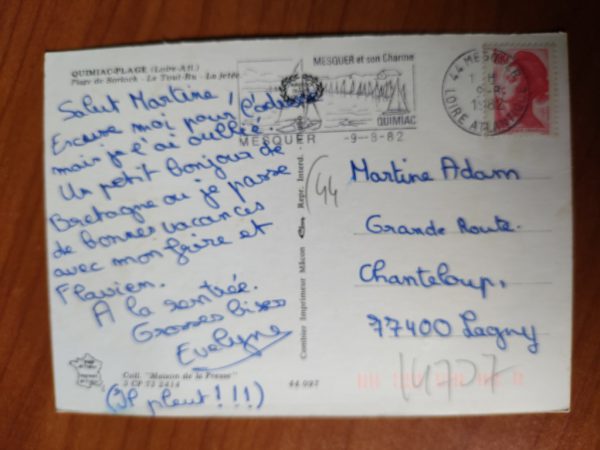 QUIMIAC-PLAGE (Loire-Atl.)
Plage de Sorlock - Le Tout-Ru - La jetée
MESQUER et son Charme
QUIMIAC
MESQUER -9-8-82
44 MESQUER
1982
LOIRE ATLANTIQUE
Salut Martine !
Excuse moi pour l'adresse
mais je l'ai oubliée.
Un petit bonjour de
Bretagne ou je passe
de bonnes vacances
avec mon frère et
Flavien.
A la rentrée.
Grosses bises
Evelyne
(Il pleut !!!)
Coll. "Maison de la Presse"
44.097
Combier Imprimeur Mâcon
Repr. Interd.
(44
Martine Adam
Grande Route.
Chanteloup,
77400 Lagny